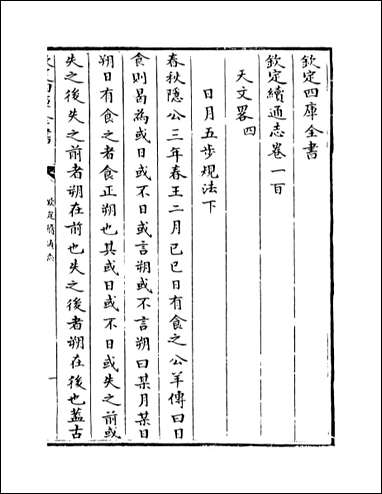 欽定四庫全書
欽定續通志卷一百
天文畧四
日月五步規法下
春秋隱公三年春王二月己巳日有食之公羊傳曰日
食則曷為或日或不日或言朔或不言朔曰某月某日
朔日有食之者食正朔也其或日或不日或失之前或
失之後失之前者朔在前也失之後者朔在後也蓋古
欽定續通志
一